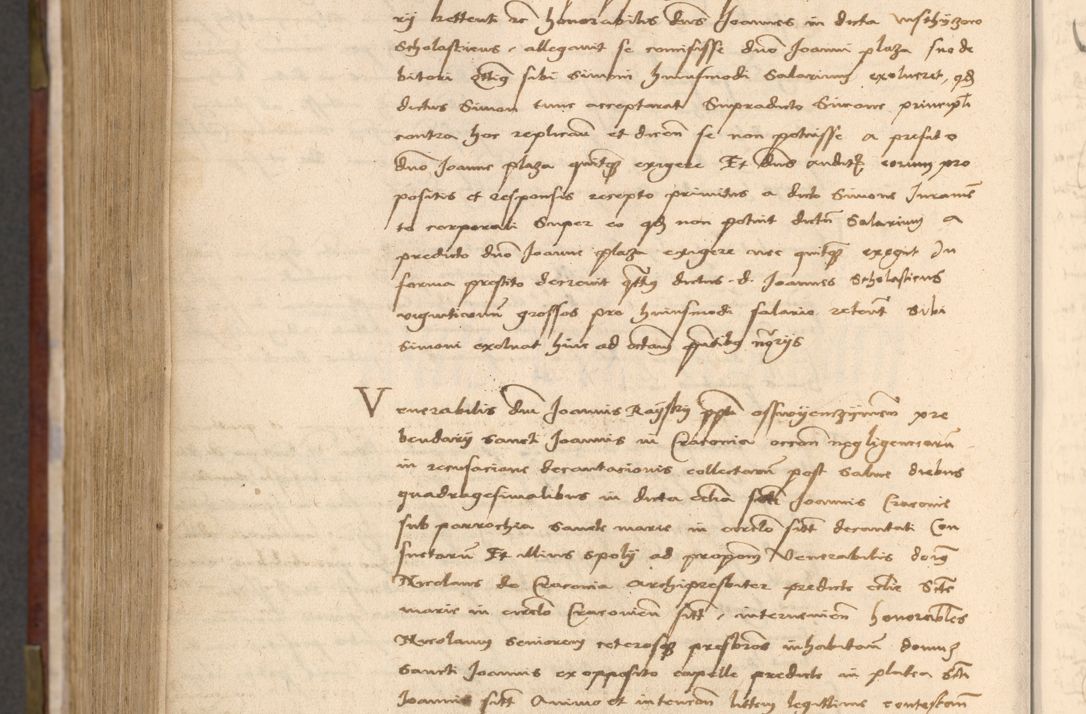 rij rettenti ꝛc honorabilis dns Joannes in dicta Vnsthyzow
Scholasticus, allegavit se comisisse dno Joanni plaza suo de
bitori qtus sibi Simoni huiusmodi Salarium exolueret, qd
dictus Simon tunc acceptarat Supradicto Simone principli
contra hoc replican et dicen se non potuisse a prefato
dno Joanne plaza quitqz exigere Et dns auditis eorum pro
positis et responsis recepto primitus a dicto Simone Juramen
to corporali Super eo qd non potuit dictu Salarium a
predicto dno Joanne plaza exigere nec quitqz exegit In
forma prestito decrevit qtus dictus d. Joannes Scholasticus
viginticum grossos pro huiusmodi salario retent Sibi
Simoni exoluat hinc ad octam pntibus nrijs
Venerabilis dni Joannis Raysky ppti osswyenczymen pre
bendarij Sancti Joannis in Cracovia occon negligenciarum
in recusacione decantacionis collectarum post Salve diebus
quadragesimalibus in dicta ecclia scti Joannis Cracovie
sub parrochia Sancte marie in circlo sitt decantari Con
suetarum Et illius spolij ad propon Venerabilis dong
Nicolaus de Cracovia Archipresbiter predicte eclie Scte
marie in circlo Cracovien sitt, intervenien honorables
Nicolaum Seniorem ceterosqz presbros inhabitan domuz
Sancti Joannis ex opposito capelle predicte in platea Sti
Joannis sitt Animo et intencon litem legittime contestan